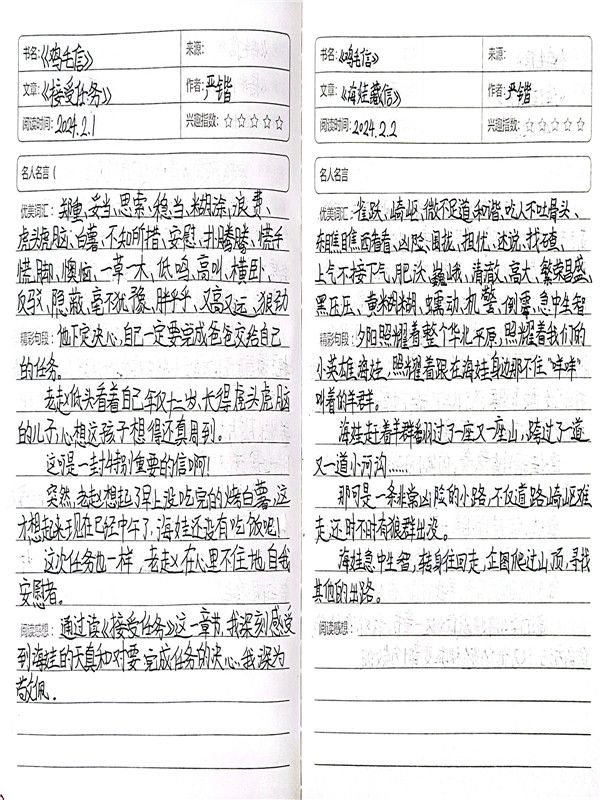 书名：《鸡毛信》
来源：
文章：《接受任务》
作者：严锴
阅读时间：2024.2.1
兴趣指数：☆☆☆☆☆
名人名言（
优美词汇：郑重、妥当、思索、稳当、糊涂、浪费、
虎头虎脑、白薯、不知所措、安慰、扑腾腾、慌手
慌脚、懊恼、一草一木、低鸣、高叫、横卧、
反驳、隐蔽、毫不犹豫、胖乎乎、又高又远、狠劲
精彩句段：他下定决心，自己一定要完成爸爸交给自己
的任务。
老赵低头看着自己年仅十二岁、长得虎头虎脑
的儿子，心想这孩子想得还真周到。
这可是一封特别重要的信啊！
突然，老赵想起了早上没吃完的烤白薯，这
才想起来现在已经中午了，海娃还没有吃饭呢！
这次任务也一样，老赵在心里不住地自我
安慰着。
阅读感想：通过读《接受任务》这一章节，我深刻感受
到海娃的天真和对要完成任务的决心，我深为
敬佩．
书名：《鸡毛信》
来源：
文章：《海娃藏信》
作者：严锴
阅读时间：2024.2.2
兴趣指数：☆☆☆☆☆
名人名言
优美词汇：雀跃、崎岖、微不足道、和谐、吃人不吐骨头、
东瞧瞧西看看、凶险、围拢、担忧、述说、找碴、
上气不接下气、肥沃、巍峨、清澈、高大、繁荣昌盛、
黑压压、黄糊糊、蠕动、机警、倒霉、急中生智
精彩句段：夕阳照耀着整个华北平原，照耀着我们的
小英雄海娃，照耀着跟在海娃身边那不住“咩咩”
叫着的羊群。
海娃赶着羊群翻过了一座又一座山，跨过了一道
又一道小河沟……
那可是一条非常凶险的小路，不仅道路崎岖难
走，还时不时有狼群出没。
海娃急中生智，转身往回走，企图爬过山顶，寻找
其他的出路。
阅读感想：